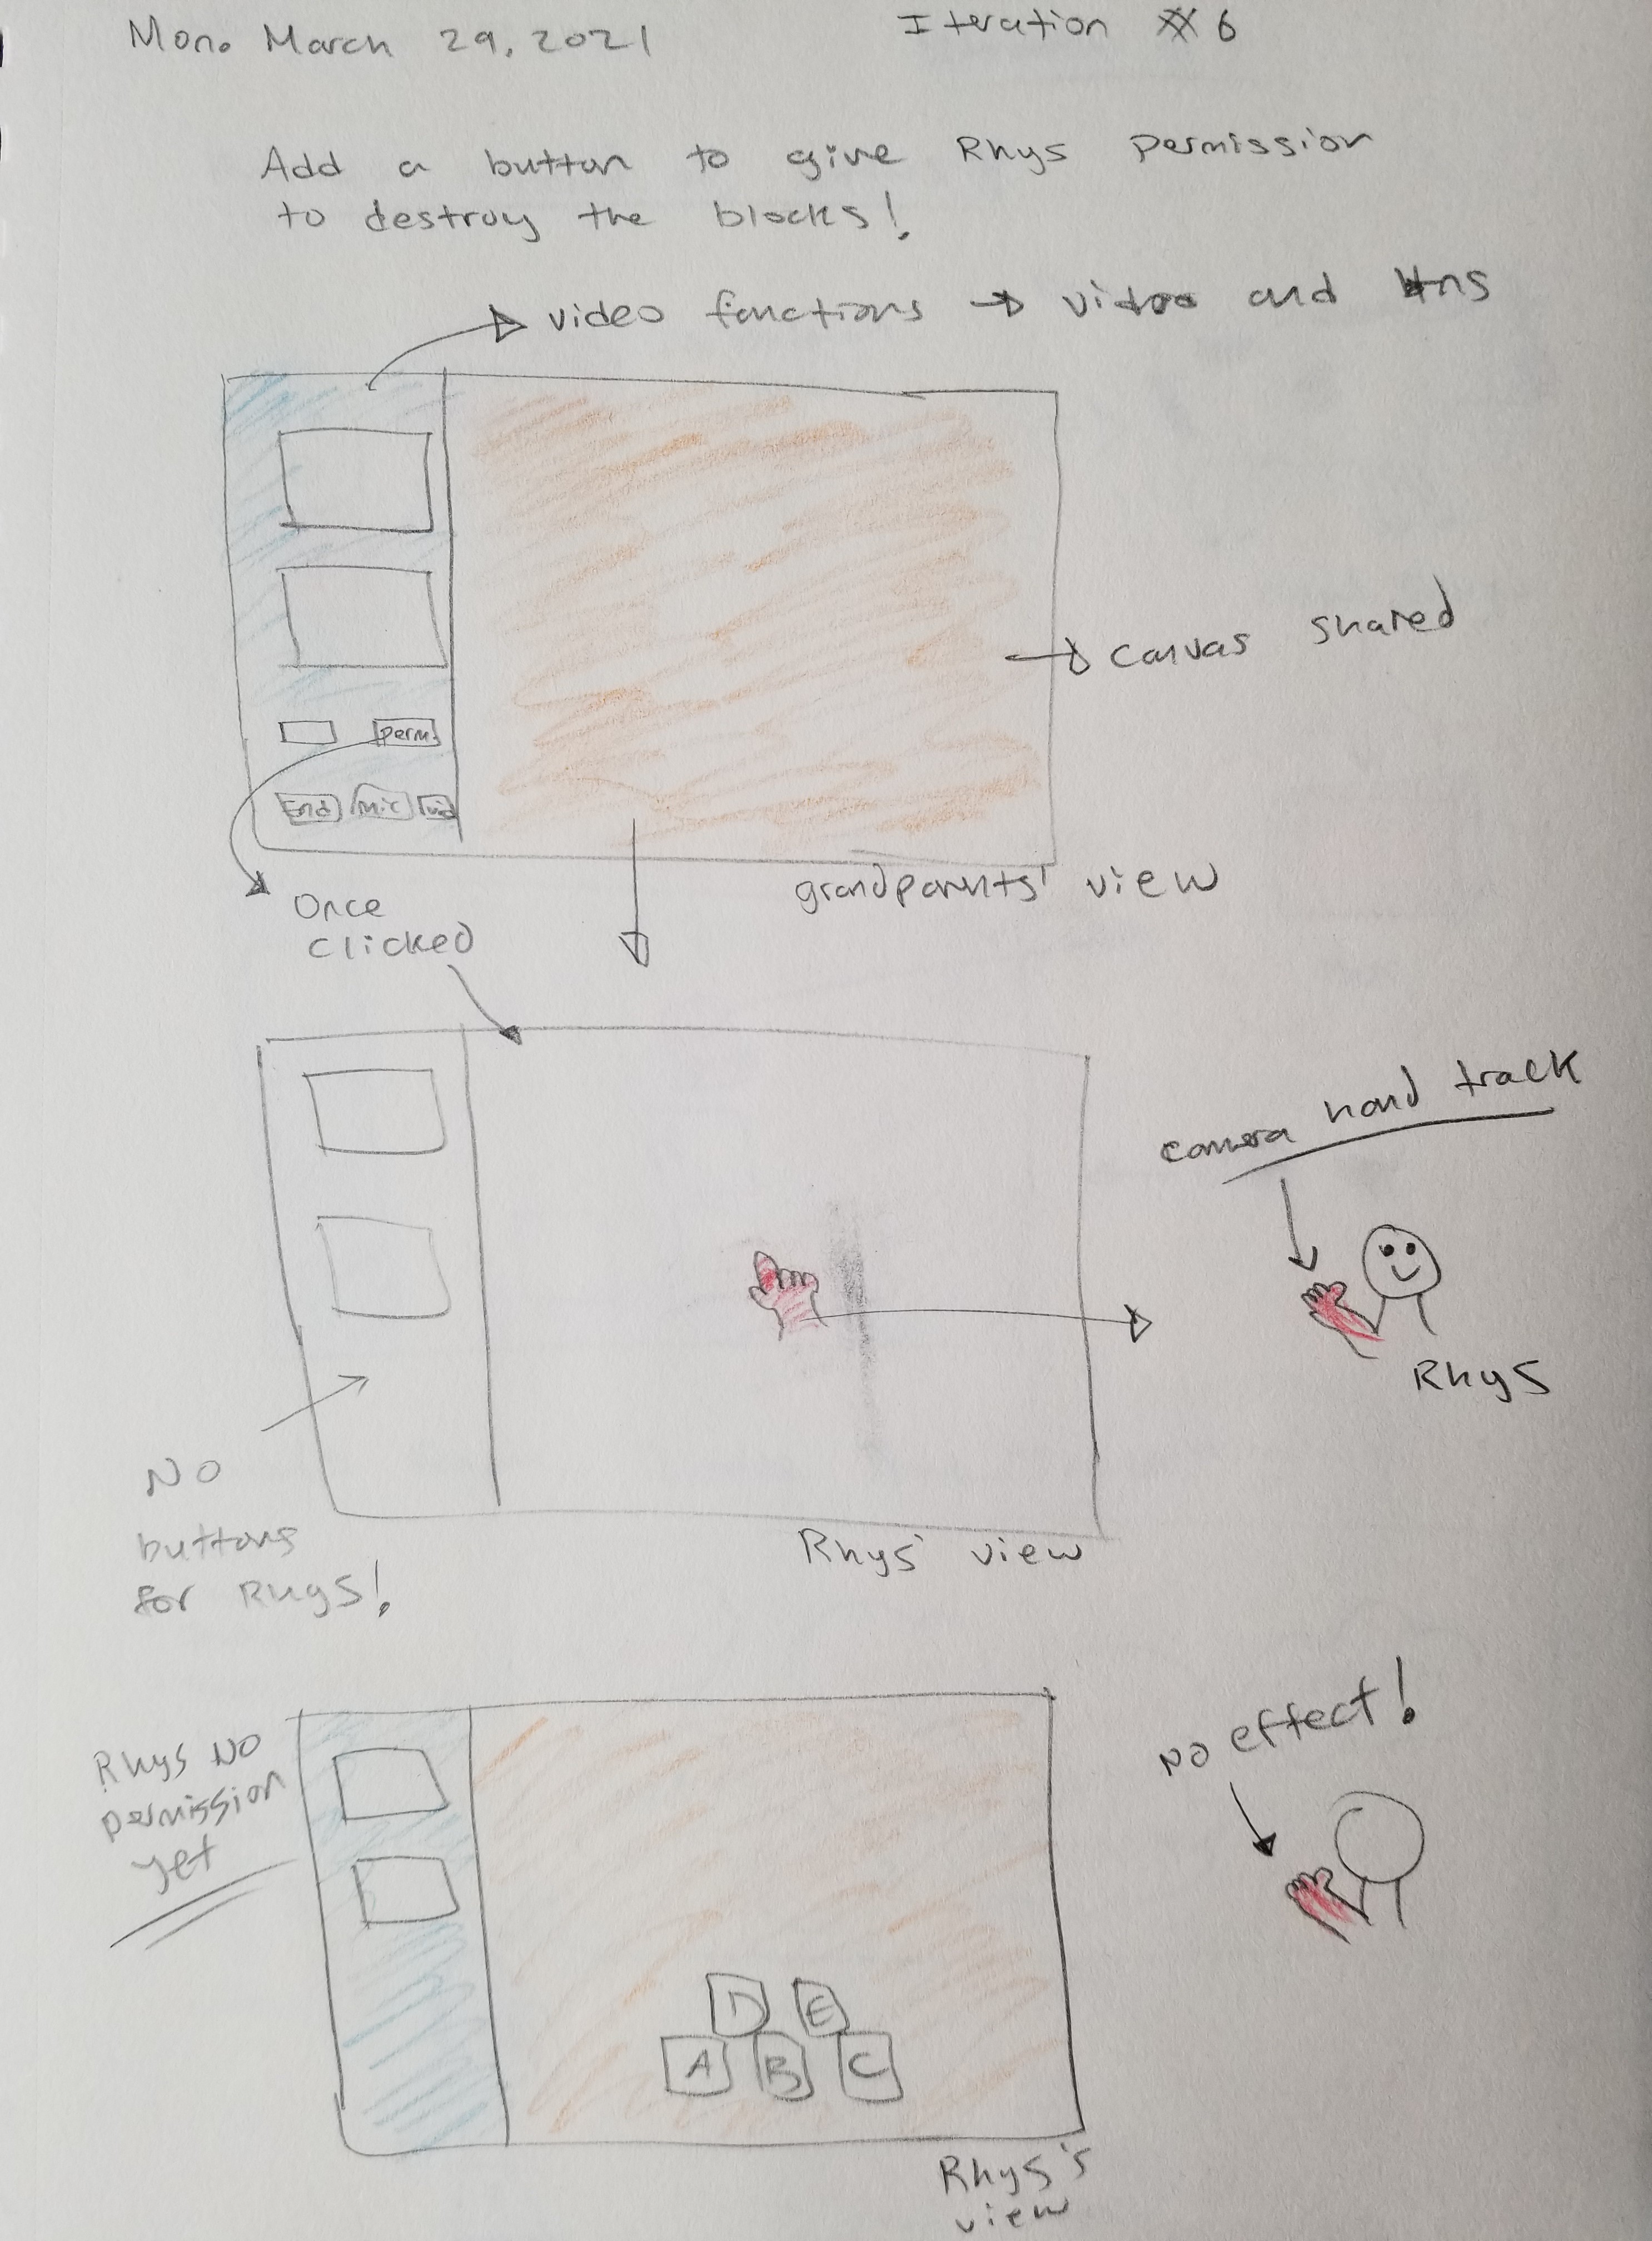 Mon. March 29, 2021
Iteration #6
Add a button to give Rhys permission
to destroy the blocks!
video functions → video and
canvas shared
perm.
End mic vid
grandparents' view
Once
clicked
camera hand track
Rhys
No
buttons
for Rhys!
Rhys' view
Rhys No
permission
yet
No effect!
D E
A B C
Rhys's
view